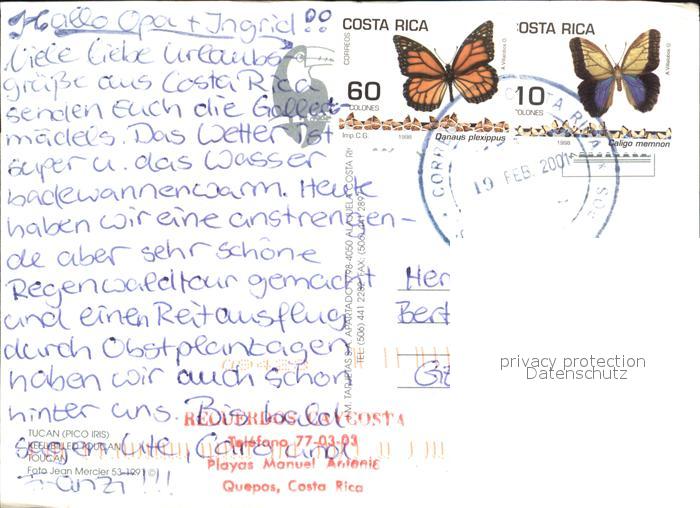 Hallo Opa + Ingrid!!
Viele liebe Urlaubs-
grüße aus Costa Rica
senden Euch die Golled-
mädels. Das Wetter ist
super u. das Wasser
badewannenwarm. Heute
haben wir eine anstrengen-
de aber sehr schöne
Regenwaldtour gemacht
und einen Reitausflug
durch Obstplantagen
haben wir auch schon
hinter uns. Bis bald
sagen Ute, Caro und
Franzi!!!
TUCAN (PICO IRIS)
KEELBILLED TOUCAN
TOUCAN
Foto Jean Mercier 53-1991 ©
RECUERDOS LA COSTA
Teléfono 77-03-03
Playas Manuel Antonio
Quepos, Costa Rica
COSTA RICA
CORREOS
60
COLONES
A Villalobos O.
Imp. C.G.
1998
Danaus plexippus
COSTA RICA
10
COLONES
A Villalobos O.
1998
Caligo memnon
COSTA RICA
19 FEB. 2001
TEL: (506) 441 2282 FAX: (506) 441 2897
Her
Bert
privacy protection
Datenschutz